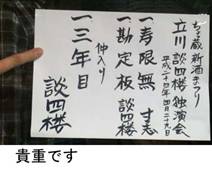 蔵 新酒まつり
立川談四楼独演会
平成二十四年四月二十九日
一 寿限無 寸志
一 勘定板 談四楼
仲入り
一 三年目 談四楼
貴重です